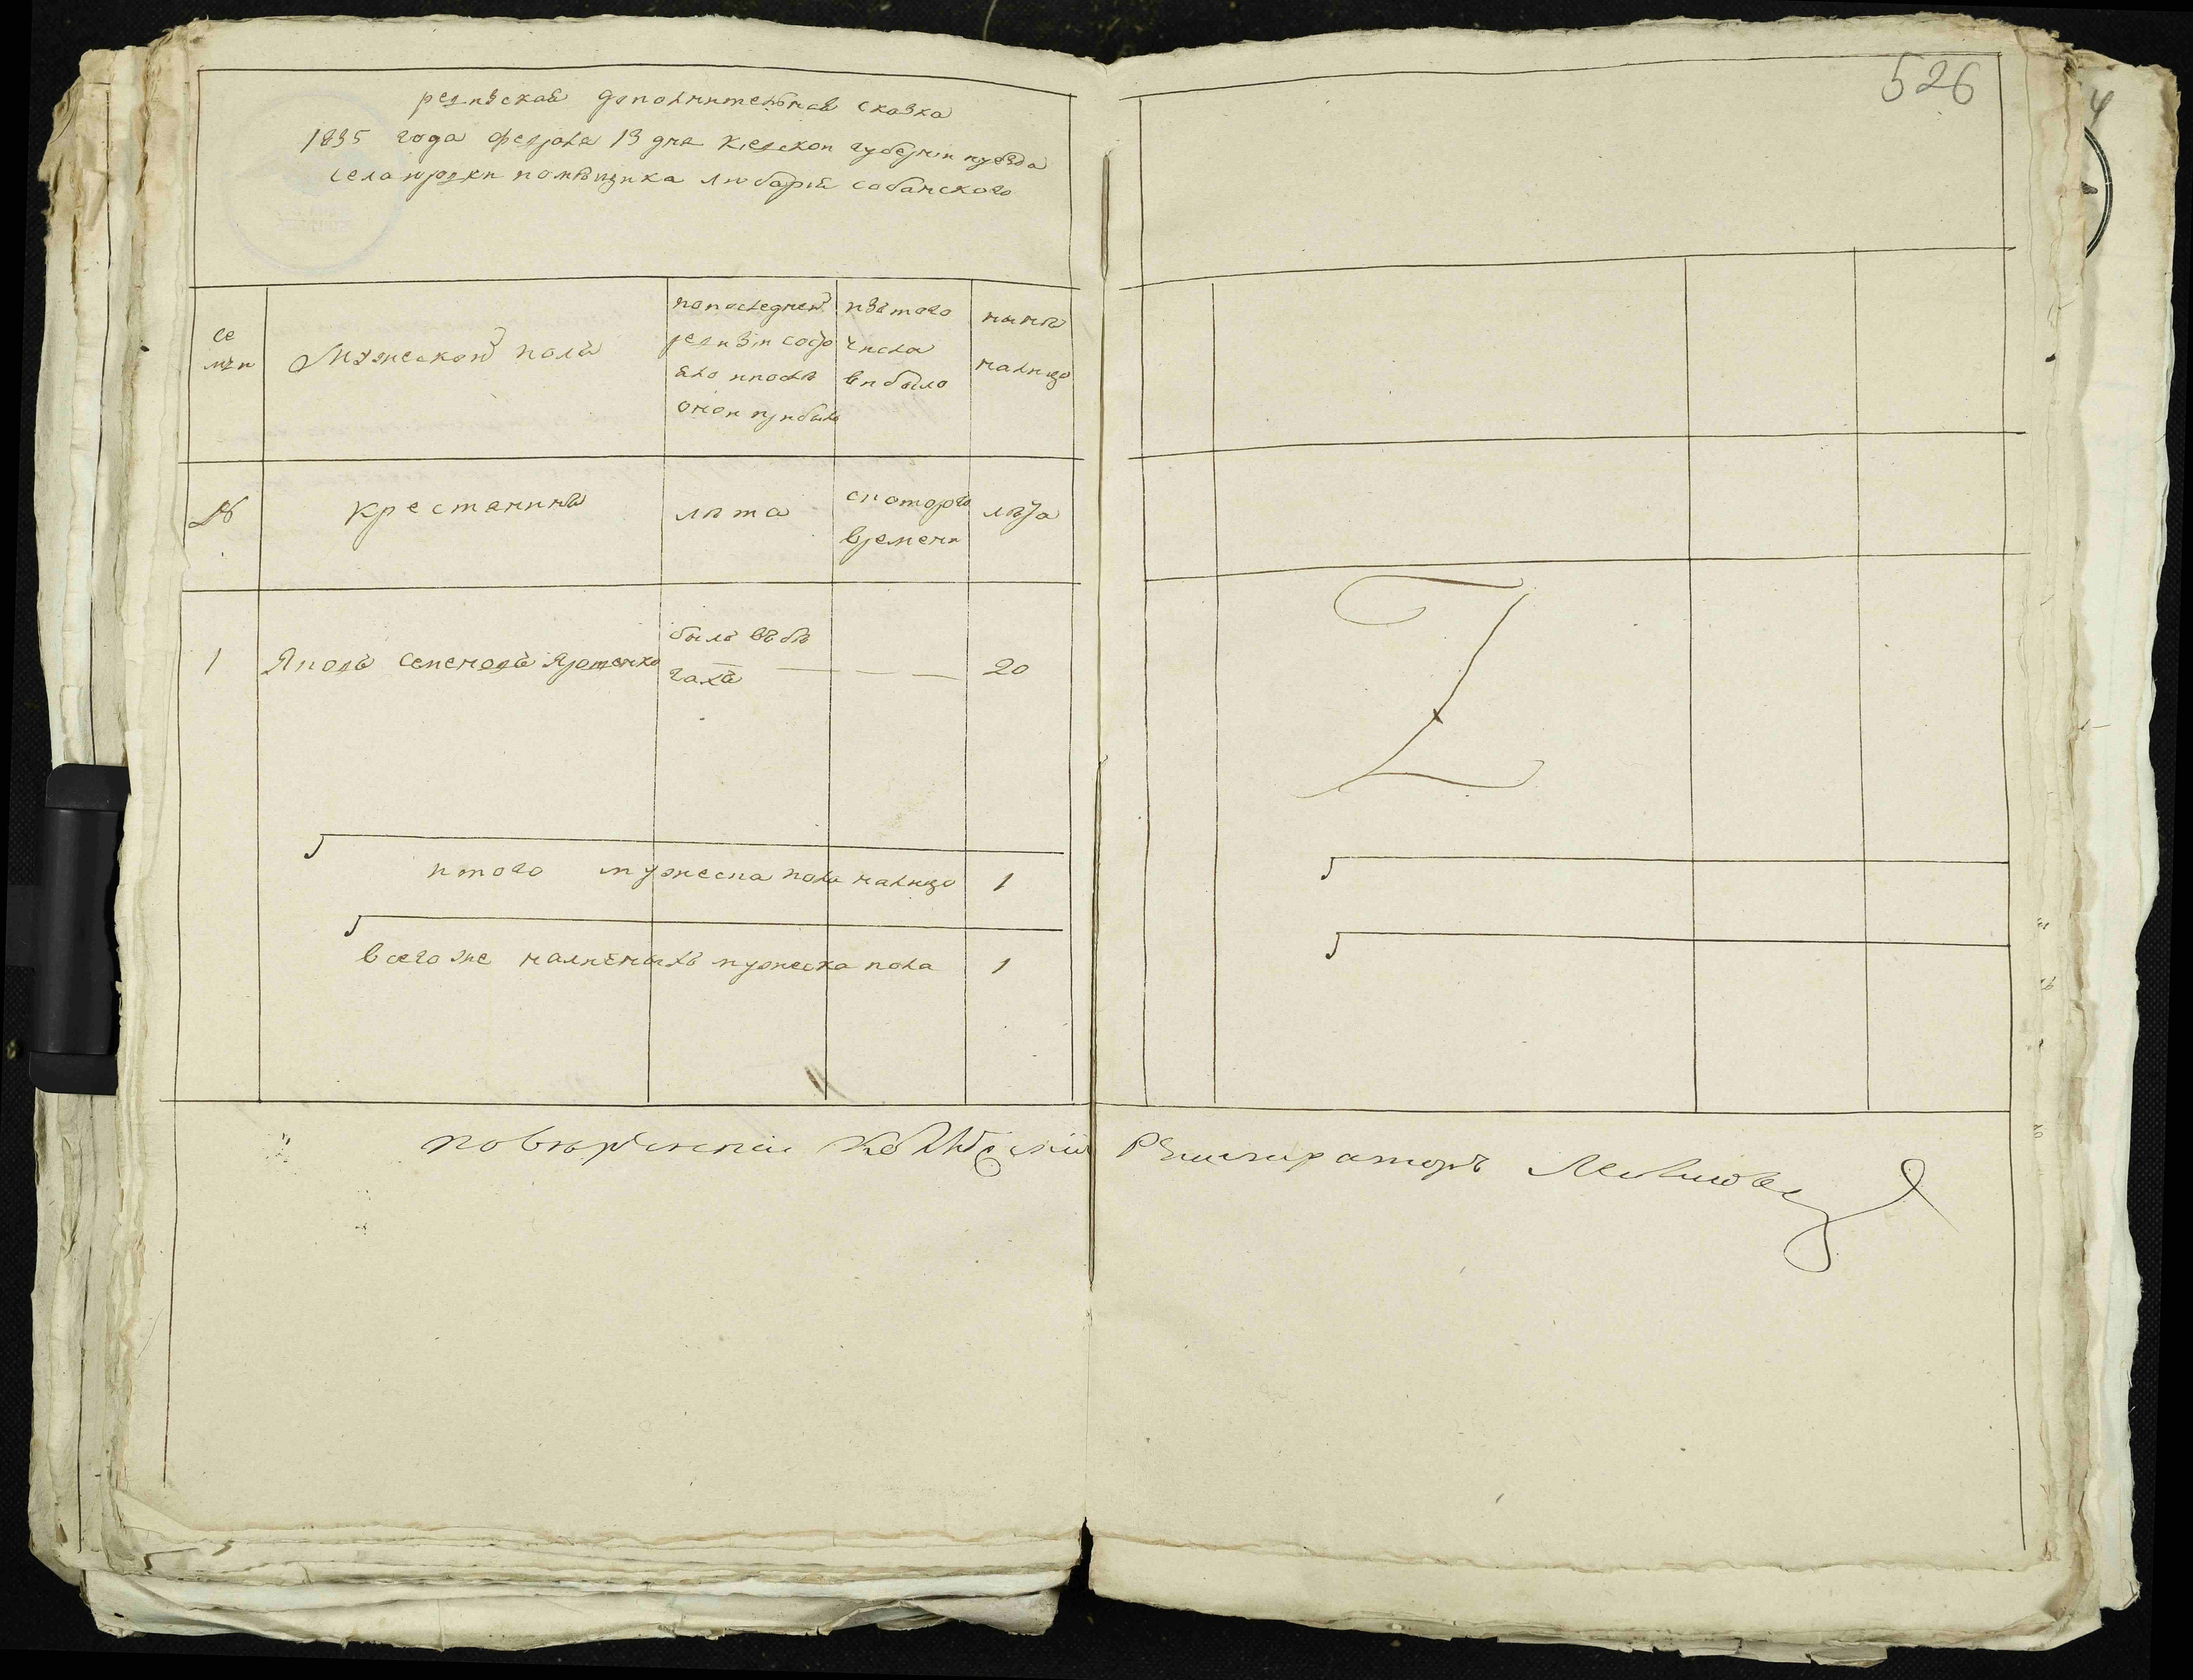 526
ревизская дополнительная сказка
1835 года февраля 13 дня Киевской губернии и уѣзда
села юровки помѣщика
собанского
се
мьи
Мужеской полъ
попоследней
ревизіи состо
яло ипослѣ
оной прибыло
изъ того
числа
выбыло
нынѣ
налицо
№
крестянинъ
лѣта
скоторого
времени
лѣта
1
Яковъ Семеновъ
былъ въ бѣ
гахъ
20
итого мужеска пола налицо 1
всегоже наличныхъ мужеска пола 1
повѣренный
Регистраторъ